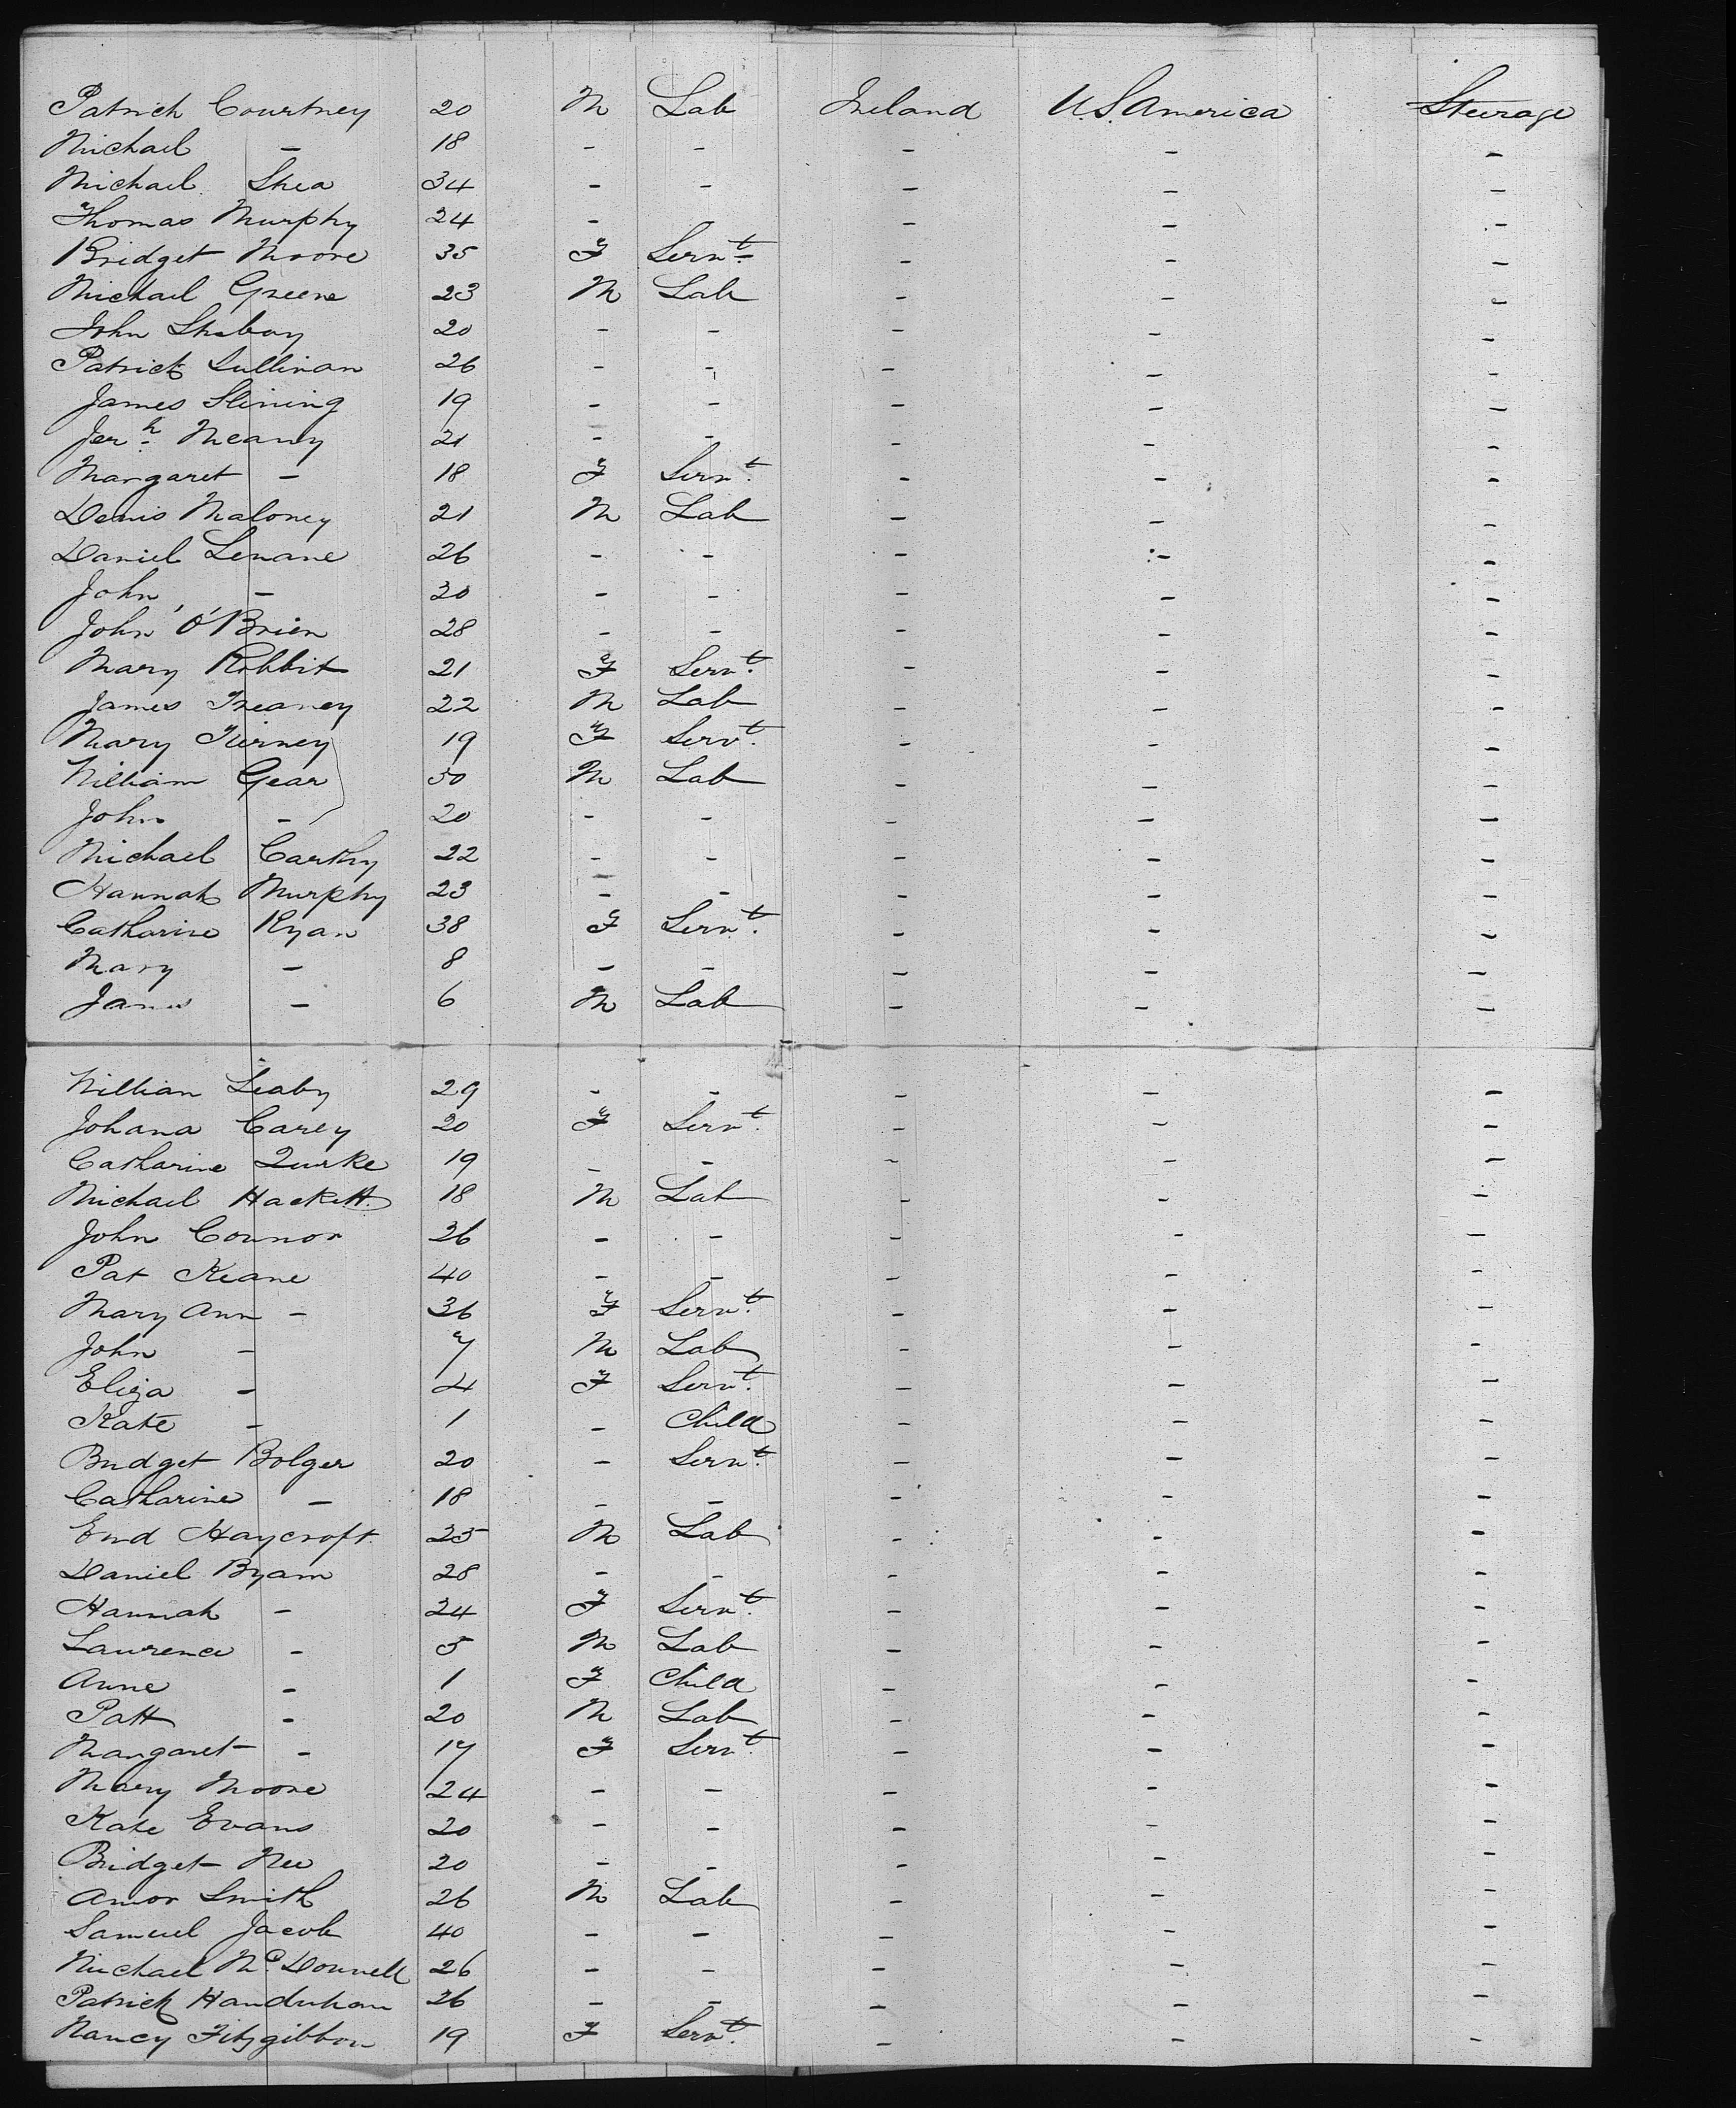 Patrick Courtney 20 M Lab Ireland U.S. America Steerage
Michael - 18 - - - - -
Michael Shea 34 - - - - -
Thomas Murphy 24 - - - - -
Bridget Moore 35 F Servt. - - -
Michael Greene 23 M Lab - - -
John 20 - - - - -
Patrick Sullivan 26 - - - - -
James 19 - - - - -
Jerh. Meany 21 - - - - -
Margaret - 18 F Servt. - - -
Denis Maloney 21 M Lab - - -
Daniel Lenane 26 - - - - -
John - 20 - - - - -
John O'Brien 28 - - - - -
Mary Robbit 21 F Servt. - - -
James Treaney 22 M Lab - - -
Mary Tierney 19 F Servt. - - -
William Gear 50 M Lab - - -
John - 20 - - - - -
Michael Carthy 22 - - - - -
Hannah Murphy 23 - - - - -
Catharine Ryan 38 F Servt. - - -
Mary - 8 - - - - -
James - 6 M Lab - - -
William Leahy 29 - - - - -
Johana Carey 20 F Servt. - - -
Catharine Quirke 19 - - - - -
Michael Hackett 18 M Lab - - -
John Connor 26 - - - - -
Pat Keane 40 - - - - -
Mary Ann - 36 F Servt. - - -
John - 7 M Lab - - -
Eliza - 4 F Servt. - - -
Kate - 1 - Child - - -
Bridget Bolger 20 - Servt. - - -
Catharine - 18 - - - - -
Haycroft 25 M Lab - - -
Daniel Byam 28 - - - - -
Hannah - 24 F Servt. - - -
Lawrence - 5 M Lab - - -
Anne - 1 F Child - - -
Patt - 20 M Lab - - -
Margaret - 17 F Servt. - - -
Mary Moore 24 - - - - -
Kate Evans 20 - - - - -
Bridget Neu 20 - - - - -
Amor Smith 26 M Lab - - -
Samuel Jacob 40 - - - - -
Michael McDonnell 26 - - - - -
Patrick 26 - - - - -
Nancy Fitzgibbon 19 F Servt. - - -